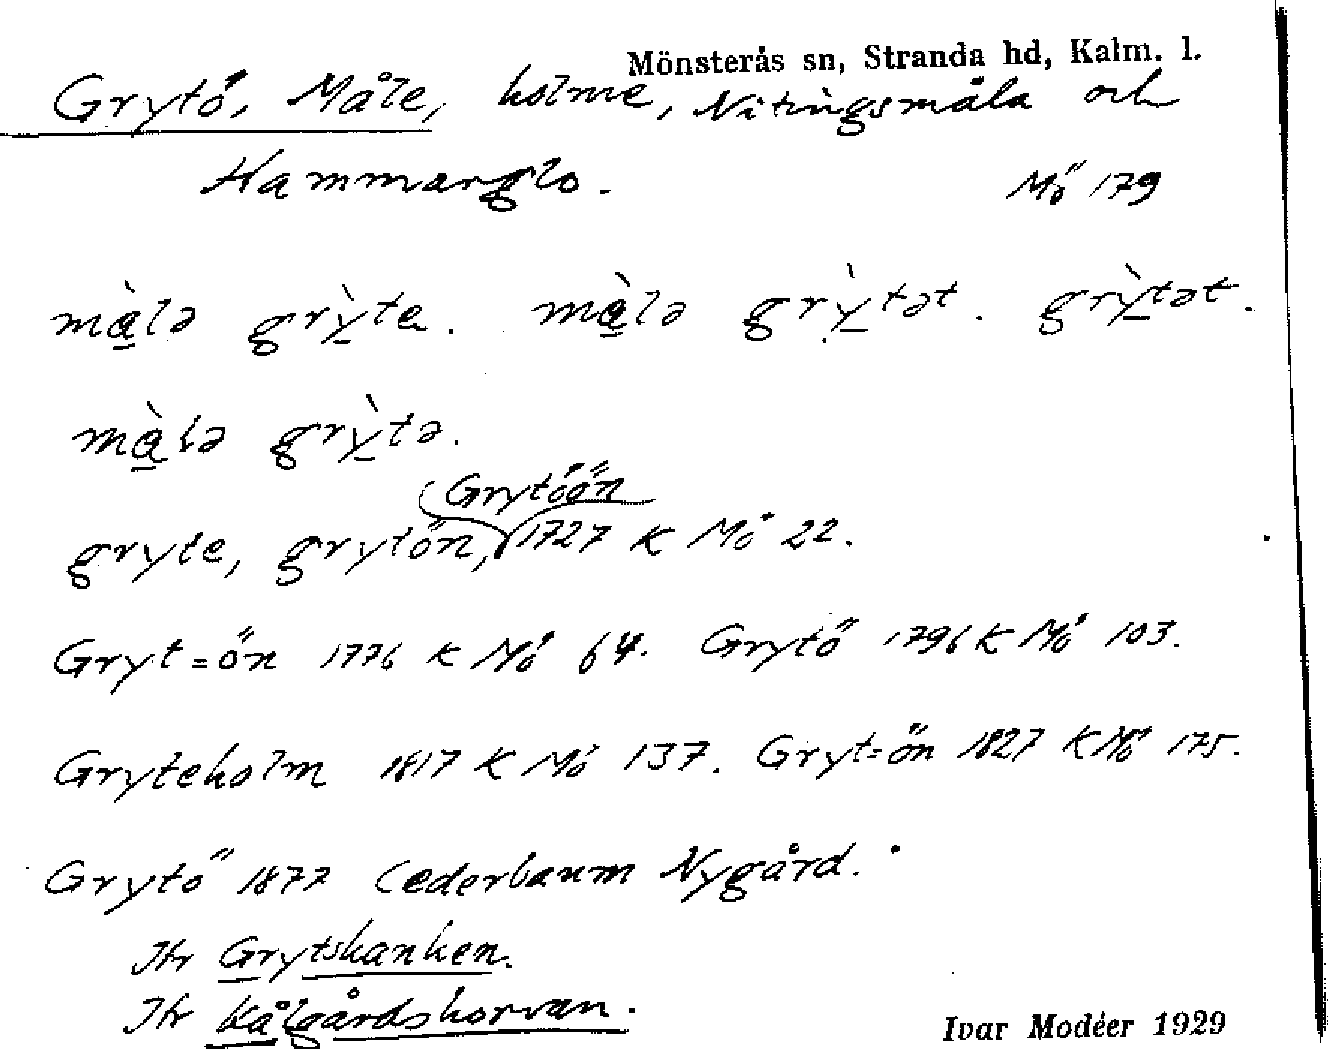 Mönsterås sn, Stranda hd, Kalm. l.
Grytö, Måle, holme, Nitingsmåla och
Hammarglo. Mö 179
màlə grỳte. màlə grỳtət. grỳtət.
màlə grỳtə.
Grytöön
gryte, grytön, 1727 K Mö 22.
Gryt=ön 1776 K Mö 64. Grytö 1796 K Mö 103.
Gryteholm 1817 K Mö 137. Gryt=ön 1827 K Mö 175.
Grytö 1877 Cederbaum Nygård.
Jfr Grytskanken.
Jfr Kålgårdshorvan.
Ivar Modéer 1929